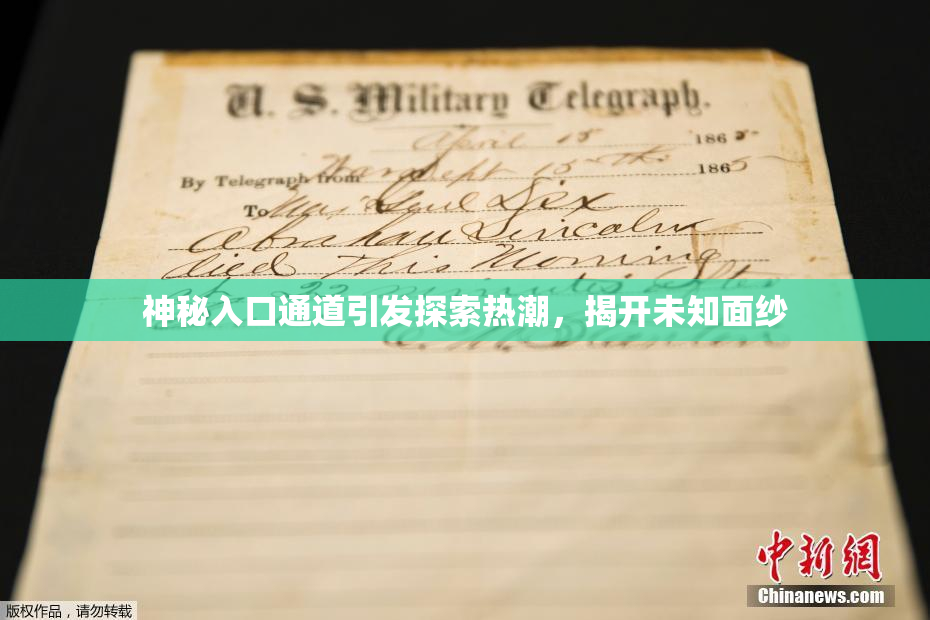 U. S. Military Telegraph.
April 15 1865
By Telegraph from War Dept 15th 1865
To Maj Genl Dix
Abraham Lincoln
died This Morning
at 22 minutes after
神秘入口通道引发探索热潮，揭开未知面纱
E. M. Stanton
中新网
Chinanews.com
版权作品，请勿转载